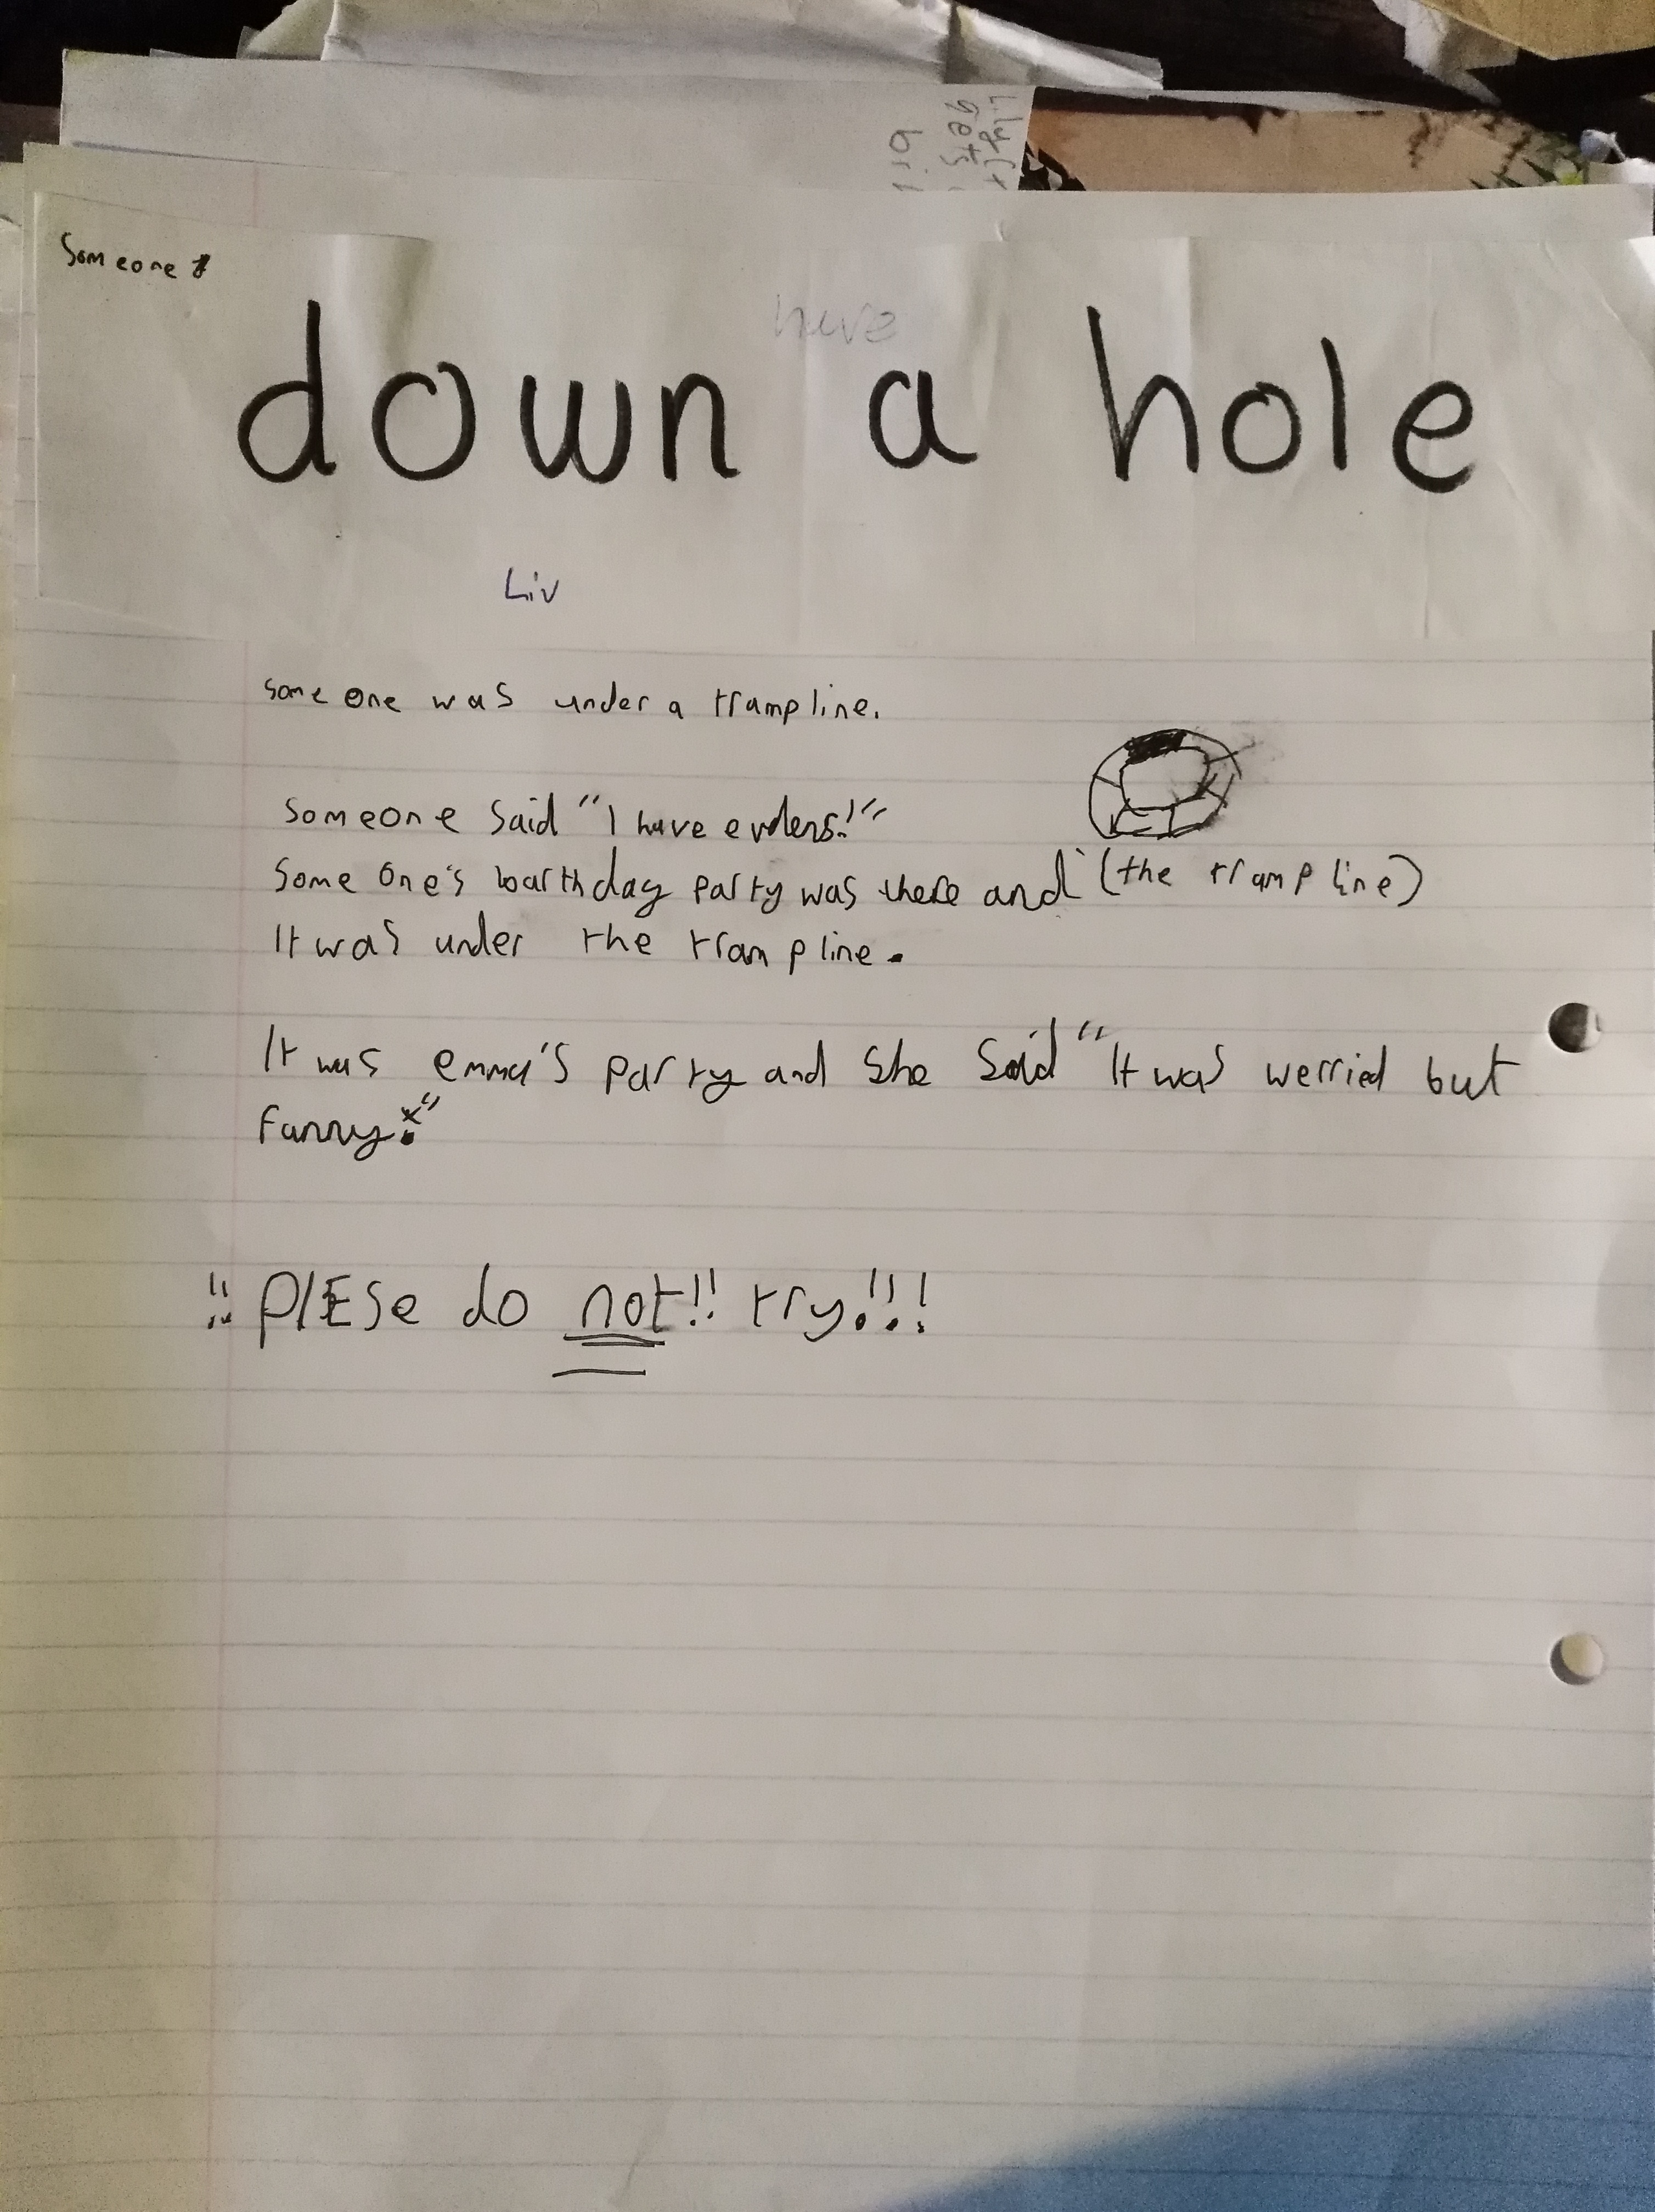 Lily
gets
Someone
have
down a hole
Liv
some one was under a trampline.
Someone Said "I have evders!"
Some One's barthday party was there and (the trampline)
It was under the trampline.
It was emma's party and She Said "It was werried but
Funny!"
!! PlESe do not!! try!!!